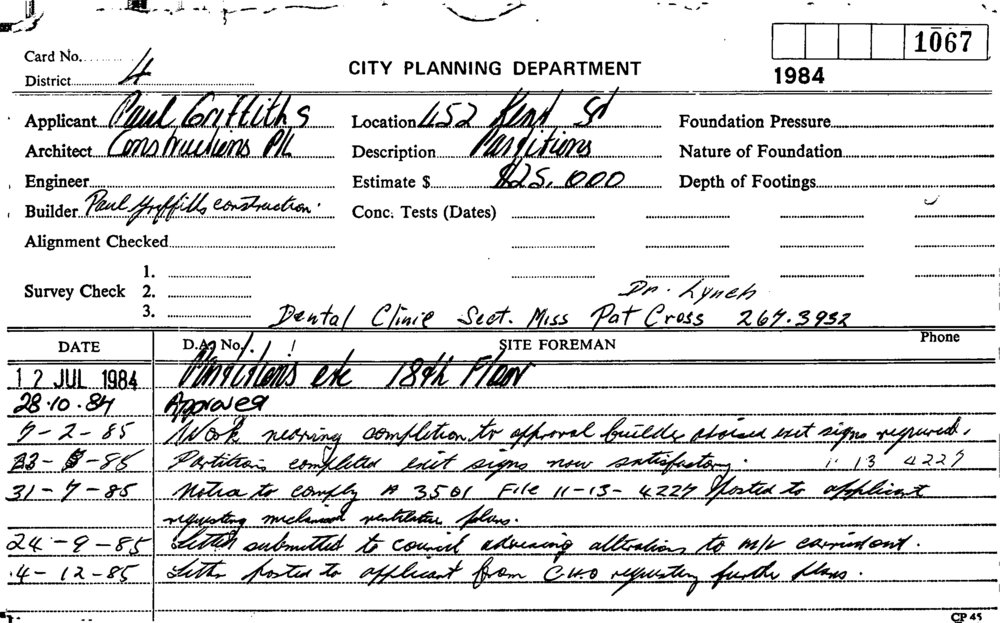 Card No. 1067
District 4 CITY PLANNING DEPARTMENT 1984
Applicant Paul Griffiths Location 452 Kent St Foundation Pressure
Architect Constructions P/L Description Partitions Nature of Foundation
Engineer Estimate $ $25,000 Depth of Footings
Builder Paul Griffiths construction. Conc. Tests (Dates)
Alignment Checked
1.
Survey Check 2. Dr. Lynch
3. Dental Clinic Sect. Miss Pat Cross 267.3932
DATE D.A. No. SITE FOREMAN Phone
12 JUL 1984 Partitions etc 18th Floor
28.10.84 Approved
7-2-85 Work nearing completion to approval builder advised exit signs required.
-85 Partitions completed exit signs now satisfactory. 11 13 4227
31-7-85 Notice to comply A 3501 File 11-13-4227 posted to applicant
requesting mechanical ventilation plans.
24-9-85 Letter submitted to council advising alterations to M/V carried out.
4-12-85 Letter posted to applicant from C.H.O requesting further plans.
CP 45